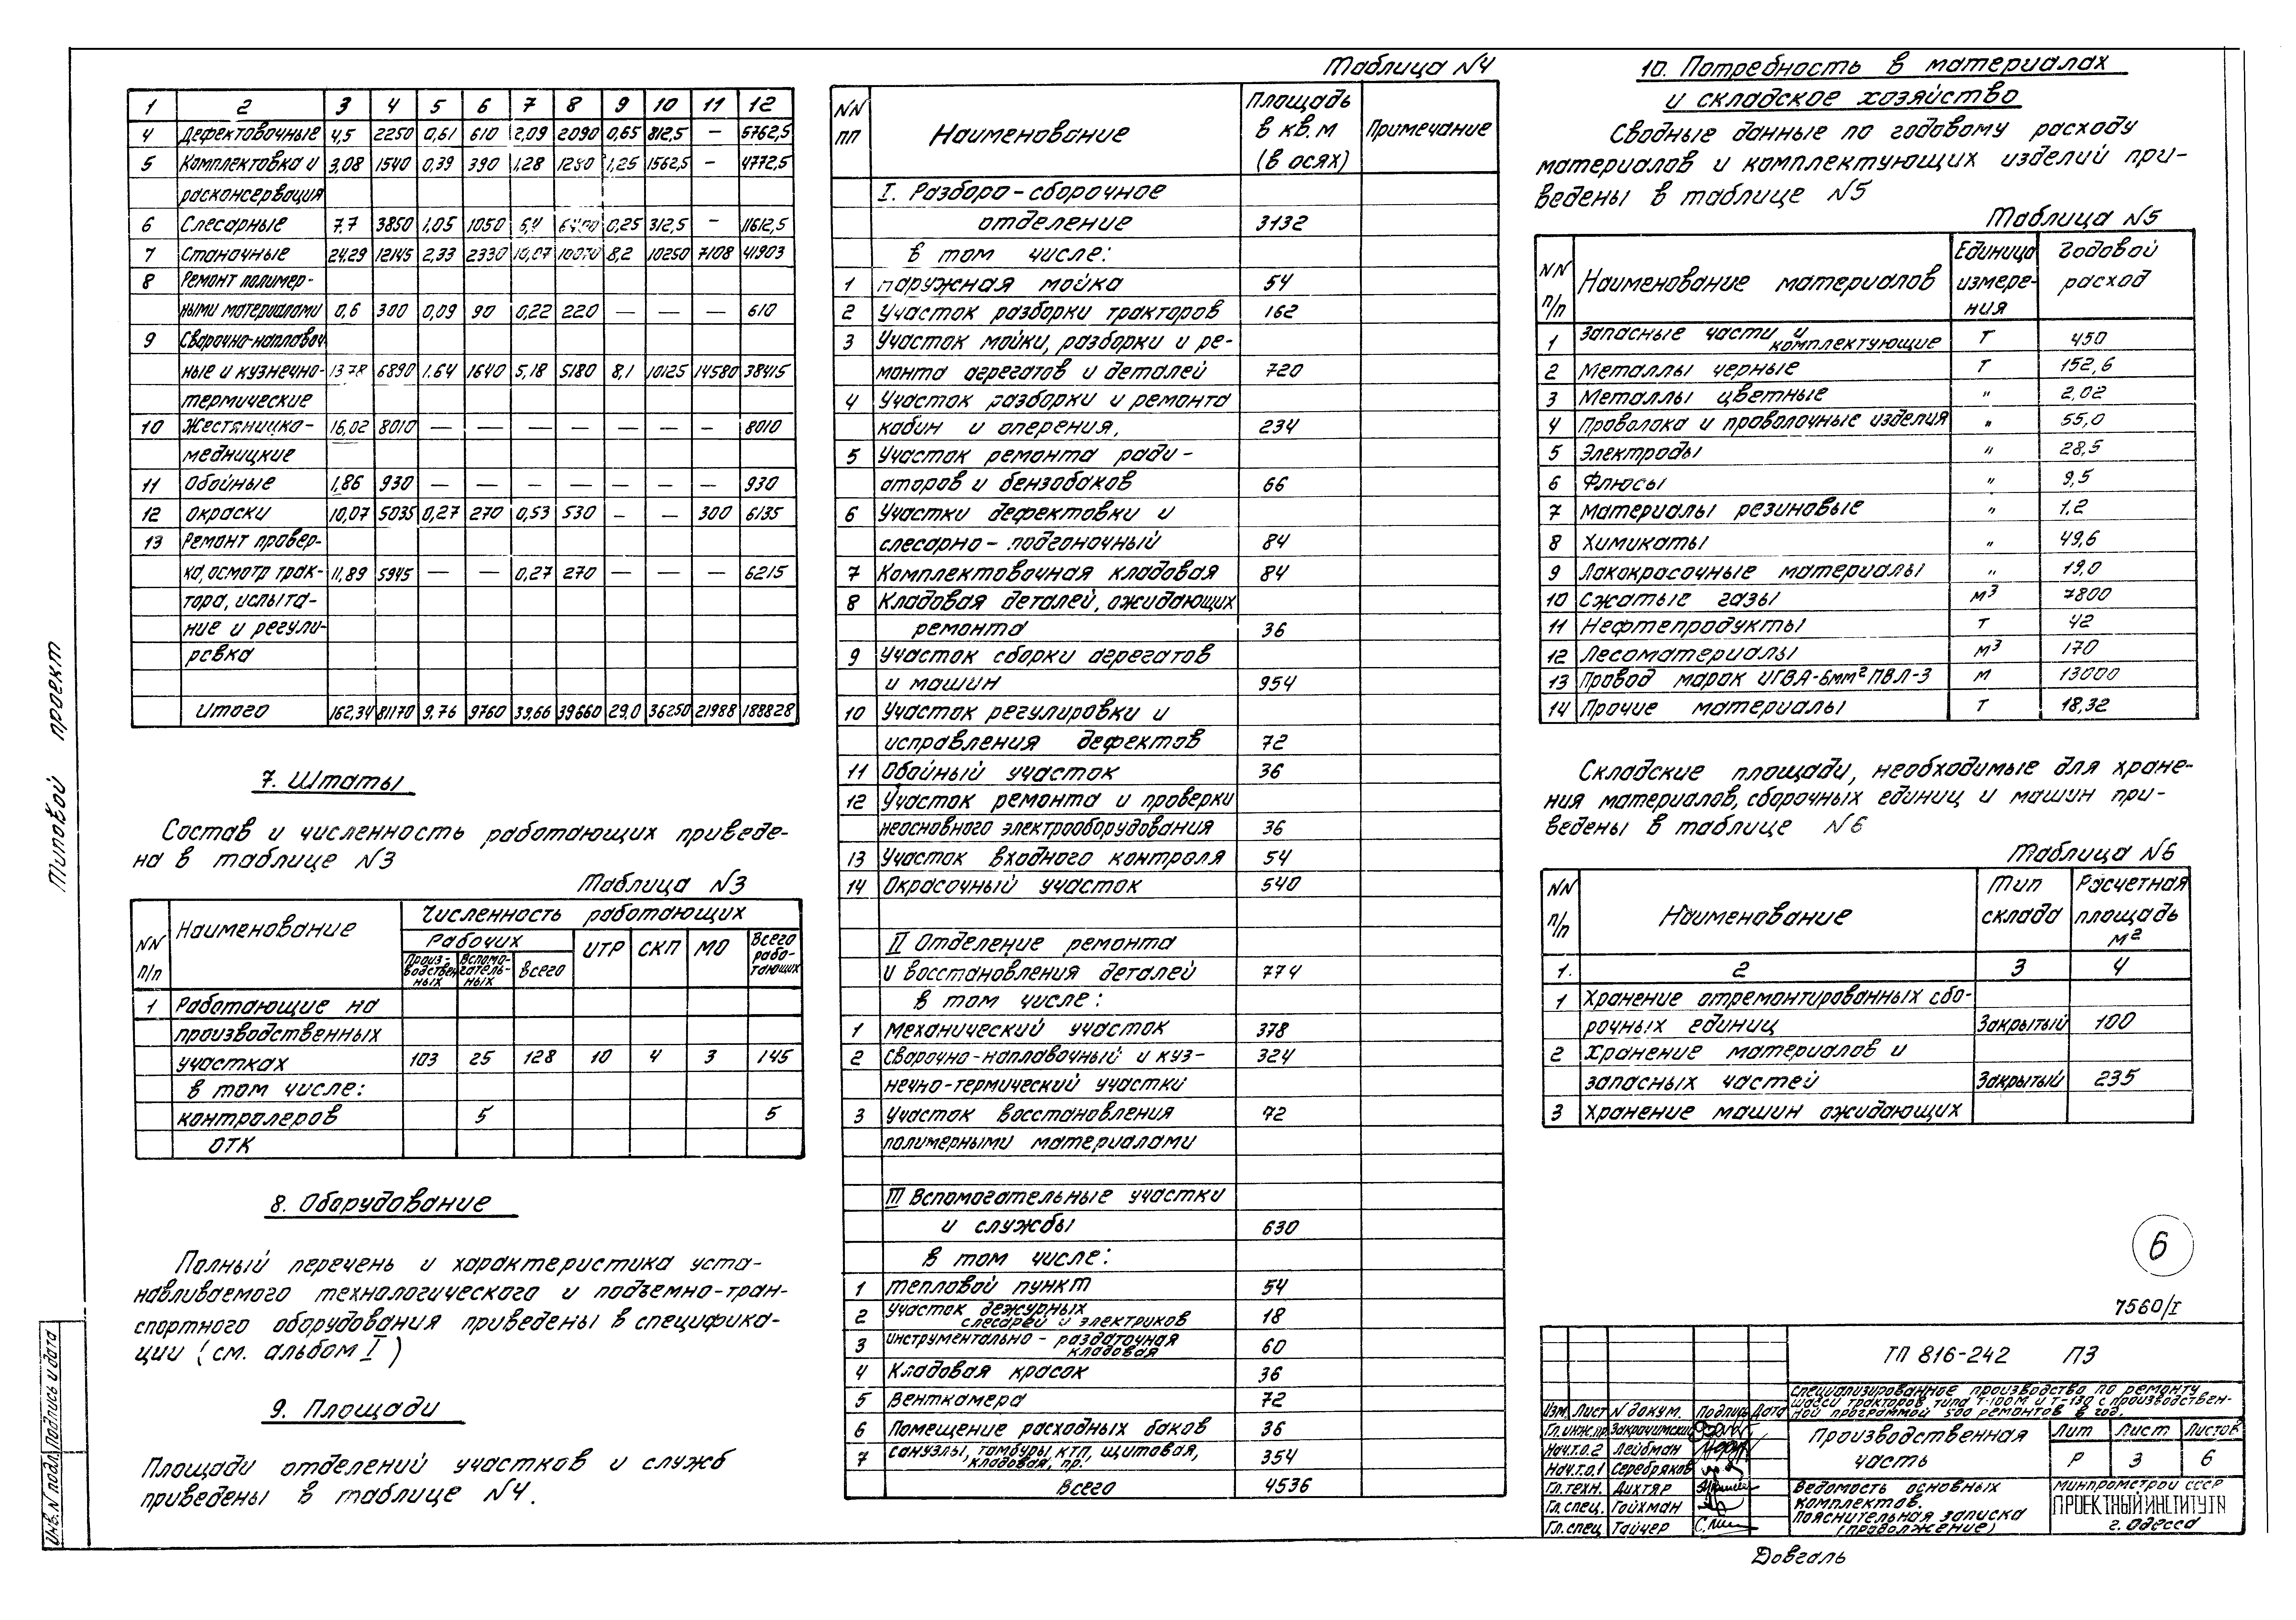 Типовой проект
Инв. N подл. Подпись и дата
1 2 3 4 5 6 7 8 9 10 11 12
4 Дефектовочные 4,5 2250 0,61 610 2.09 2090 0,65 812,5 — 5762,5
5 Комплектовка и 3,08 1540 0,39 390 1,28 1280 1,25 1562,5 — 4772,5
расконсервация
6 Слесарные 7.7 3850 1,05 1050 6,4 6400 0,25 312,5 — 11612,5
7 Станочные 24.29 12145 2,33 2330 10,07 10070 8,2 10250 7108 41903
8 Ремонт полимер-
ными материалами 0,6 300 0,09 90 0,22 220 — — — 610
9 Сварочно-наплавоч
ные и кузнечно- 13 78 6890 1.64 1640 5,18 5180 8,1 10125 14580 38415
термические
10 Жестяницко- 16,02 8010 — — — — — — — 8010
медницкие
11 Обойные 1,86 930 — — — — — — — 930
12 окраски 10,07 5035 0,27 270 0,53 530 — — 300 6135
13 Ремонт провер-
ка, осмотр трак- 11,89 5945 — — 0,27 270 — — — 6215
тора, испыта-
ние и регули-
ровка
Итого 162,34 81170 9.76 9760 39,66 39660 29,0 36250 21988 188828
7. Штаты
Состав и численность работающих приведе-
на в таблице N3
Таблица N3
NN п/п Наименование Численность работающих
Рабочих ИТР СКП МО Всего рабо-тающих
Произ-водствен ных Вспомо-гатель-ных всего
1 Работающие на
производственных
участках 103 25 128 10 4 3 145
в том числе:
контролеров 5 5
ОТК
8. Оборудование
Полный перечень и характеристика уста-
навливаемого технологического и подъемно-тран-
спортного оборудования приведены в специфика-
ции (см. альбом I)
9. Площади
Площади отделений участков и служб
приведены в таблице N4.
Таблица N4
NN пп Наименование Площадь в кв.м (в осях) Примечание
I. Разборо-сборочное
отделение 3132
в том числе:
1 наружная мойка 54
2 Участок разборки тракторов 162
3 Участок мойки, разборки и ре-
монта агрегатов и деталей 720
4 Участок разборки и ремонта
кабин и оперения, 234
5 Участок ремонта ради-
аторов и бензобаков 66
6 Участки дефектовки и
слесарно-подгоночный 84
7 Комплектовочная кладовая 84
8 Кладовая деталей, ожидающих
ремонта 36
9 Участок сборки агрегатов
и машин 954
10 Участок регулировки и
исправления дефектов 72
11 Обойный участок 36
12 Участок ремонта и проверки
неосновного электрооборудования 36
13 Участок входного контроля 54
14 Окрасочный участок 540
II Отделение ремонта
и восстановления деталей 774
в том числе:
1 механический участок 378
2 Сварочно-наплавочный и куз- 324
нечно-термический участки
3 Участок восстановления 72
полимерными материалами
III Вспомогательные участки
и службы 630
в том числе:
1 тепловой пункт 54
2 Участок дежурных
слесарей и электриков 18
3 инструментально-раздаточная
кладовая 60
4 Кладовая красок 36
5 Венткамера 72
6 Помещение расходных баков 36
7 санузлы, тамбуры, КТП, щитовая,
кладовая, пр. 354
всего 4536
10. Потребность в материалах
и складское хозяйство
Сводные данные по годовому расходу
материалов и комплектующих изделий при-
ведены в таблице N5
Таблица N5
NN п/п Наименование материалов Единица измере-ния Годовой расход
1 Запасные части и
комплектующие Т 450
2 Металлы черные Т 152,6
3 Металлы цветные " 2,02
4 Проволока и проволочные изделия " 55,0
5 Электроды " 28,5
6 Флюсы " 9,5
7 материалы резиновые " 1,2
8 Химикаты " 49,6
9 Лакокрасочные материалы " 19,0
10 Сжатые газы м3 7800
11 Нефтепродукты Т 42
12 Лесоматериалы м3 170
13 Провод марок ИГВА-6мм2 ПВЛ-3 м 13000
14 Прочие материалы Т 18,32
Складские площади, необходимые для хране-
ния материалов, сборочных единиц и машин при-
ведены в таблице N6
Таблица N6
NN п/п Наименование Тип склада Расчетная площадь м2
1. 2 3 4
1 хранение отремонтированных сбо-
рочных единиц Закрытый 100
2 хранение материалов и
запасных частей Закрытый 235
3 хранение машин ожидающих
6
7560/I
ТП 816-242 ПЗ
Специализированное производство по ремонту
шасси тракторов типа Т-100М и Т-130 с производствен-
ной программой 500 ремонтов в год.
Изм. Лист N докум. Подпись Дата
Гл.инж.пр. Закрачимский
Нач.т.о.2 Лейбман
Нач.т.о.1 Серебряков
Гл.техн. Дихтяр
Гл.спец. Гойхман
Гл.спец Тайчер
Производственная
часть
Лит Лист Листов
Р 3 6
Ведомость основных
комплектов.
Пояснительная записка
(продолжение)
минпромстрой СССР
ПРОЕКТНЫЙ ИНСТИТУТ
г. Одесса
Довгаль